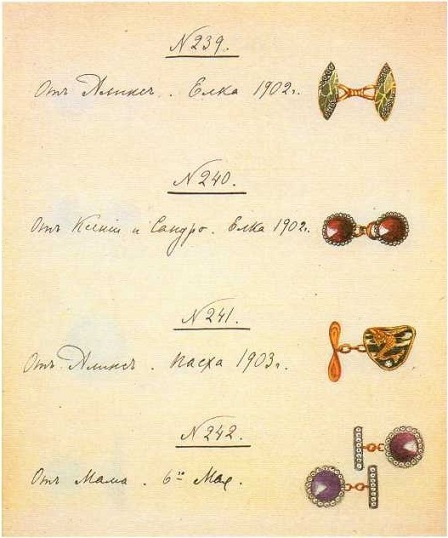 N 239.
Отъ Аликсъ. Елка 1902 г.
N 240.
Отъ Ксении и Сандро. Елка 1902 г.
N 241.
Отъ Аликсъ. Пасха 1903 г.
N 242.
Отъ Мама. 6го Мая.